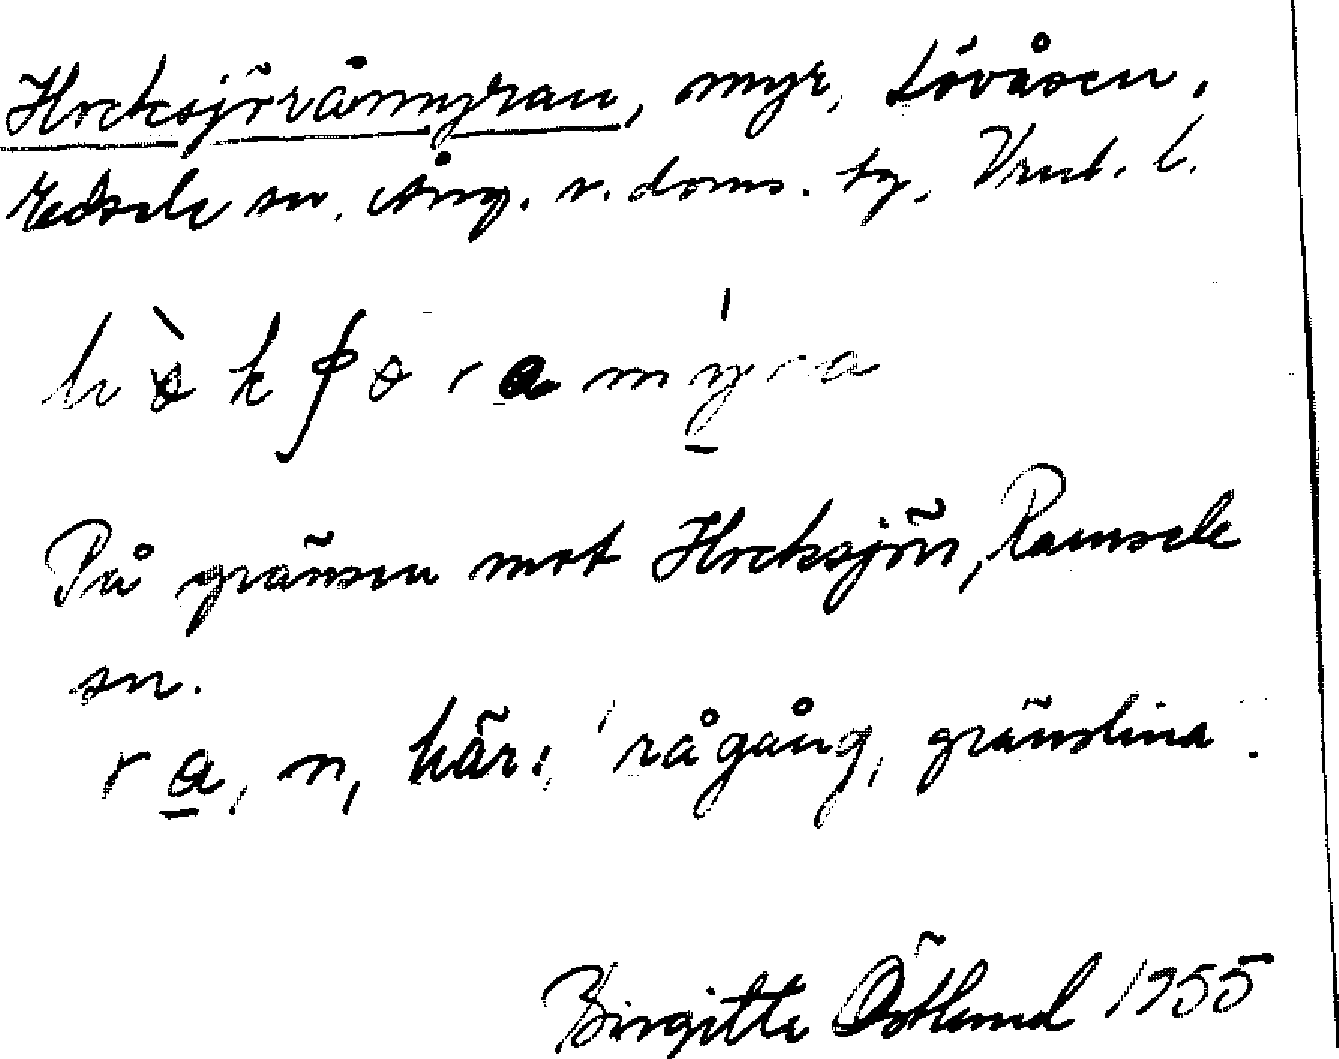 Hocksjöråmyran, myr, Lövåsen,
Edsele sn. Ång. v. doms. tg. Vnl. l.
På gränsen mot Hocksjön, Ramsele
sn.
ra, n, här: 'rågång, gränslina'.
Birgitta Östlund 1955